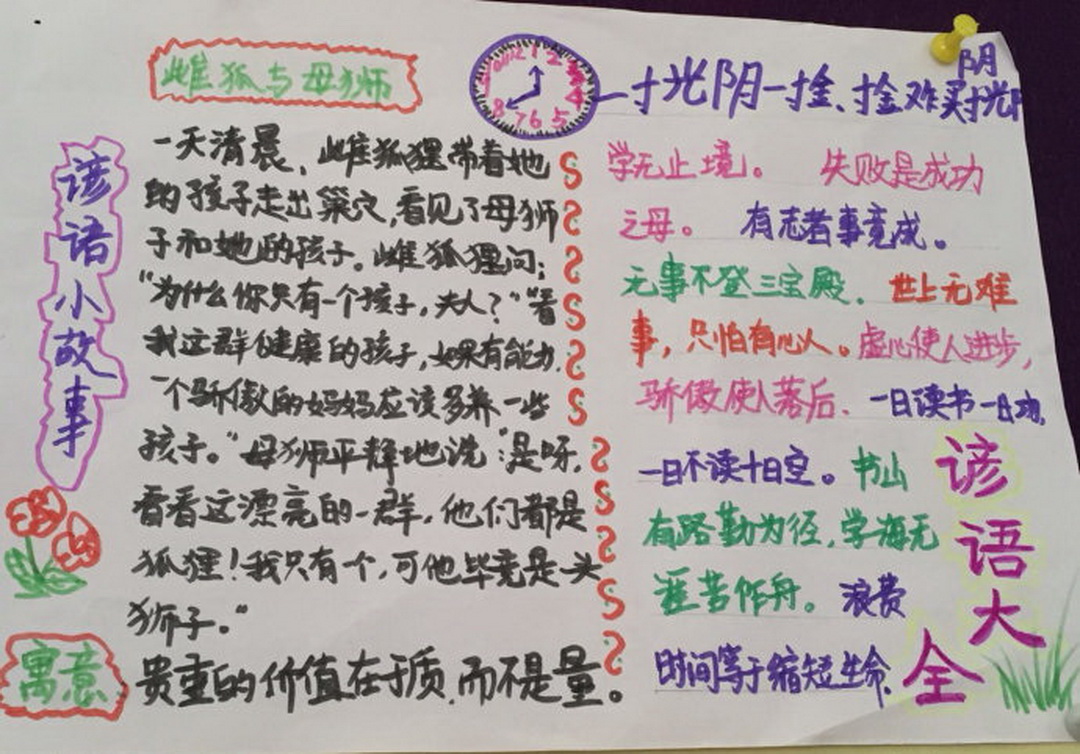 雌狐与母狮
谚语小故事
一天清晨，雌狐狸带着她
的孩子走出巢穴，看见了母狮
子和她的孩子。雌狐狸问：
“为什么你只有一个孩子，夫人？”“看
我这群健康的孩子，如果有能力，
一个骄傲的妈妈应该多养一些
孩子。”母狮平静地说：“是呀，
看看这漂亮的一群，他们都是
狐狸！我只有一个，可他毕竟是一头
狮子。”
寓意
贵重的价值在于质，而不是量。
12 1 2 4 5 6 7 8
一寸光阴一寸金、寸金难买寸光阴
学无止境。 失败是成功
之母。 有志者事竟成。
无事不登三宝殿． 世上无难
事，只怕有心人。虚心使人进步，
骄傲使人落后． 一日读书一日功，
一日不读十日空。书山
有路勤为径，学海无
涯苦作舟。 浪费
时间等于缩短生命．
谚语大全